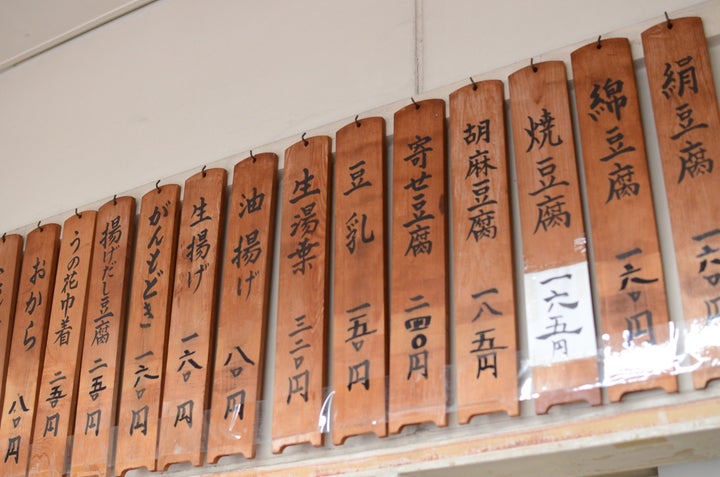 絹豆腐 一六〇
綿豆腐 一六〇円
焼豆腐 一六五円
胡麻豆腐 一八五円
寄せ豆腐 二四〇円
豆乳 一五〇円
生湯葉 三二〇円
油揚げ 八〇円
生揚げ 一六〇円
がんもどき 一六〇円
揚げだし豆腐 二五〇円
うの花巾着 二五〇円
おから 八〇円